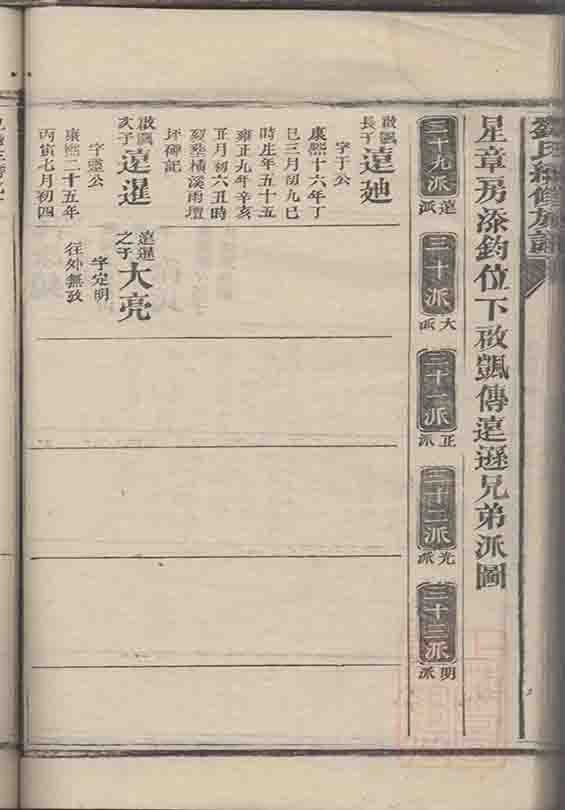 劉氏續修族譜
星章房添釣位下啟颽傳遠遜兄弟派圖
二十九派
遠派
三十派
大派
三十一派
正派
三十二派
光派
三十三派
明派
啟颽
長子
遠廸
字于公
康熙十六年丁
巳三月初九巳
時庄年五十五
雍正九年辛亥
正月初六丑時
歿塟橫溪雨壇
坪碑記
啟颽
次子
遠暹
字靈公
康熙二十五年
丙寅七月初四
遠暹
之子
大亮
字定明
往外無攷